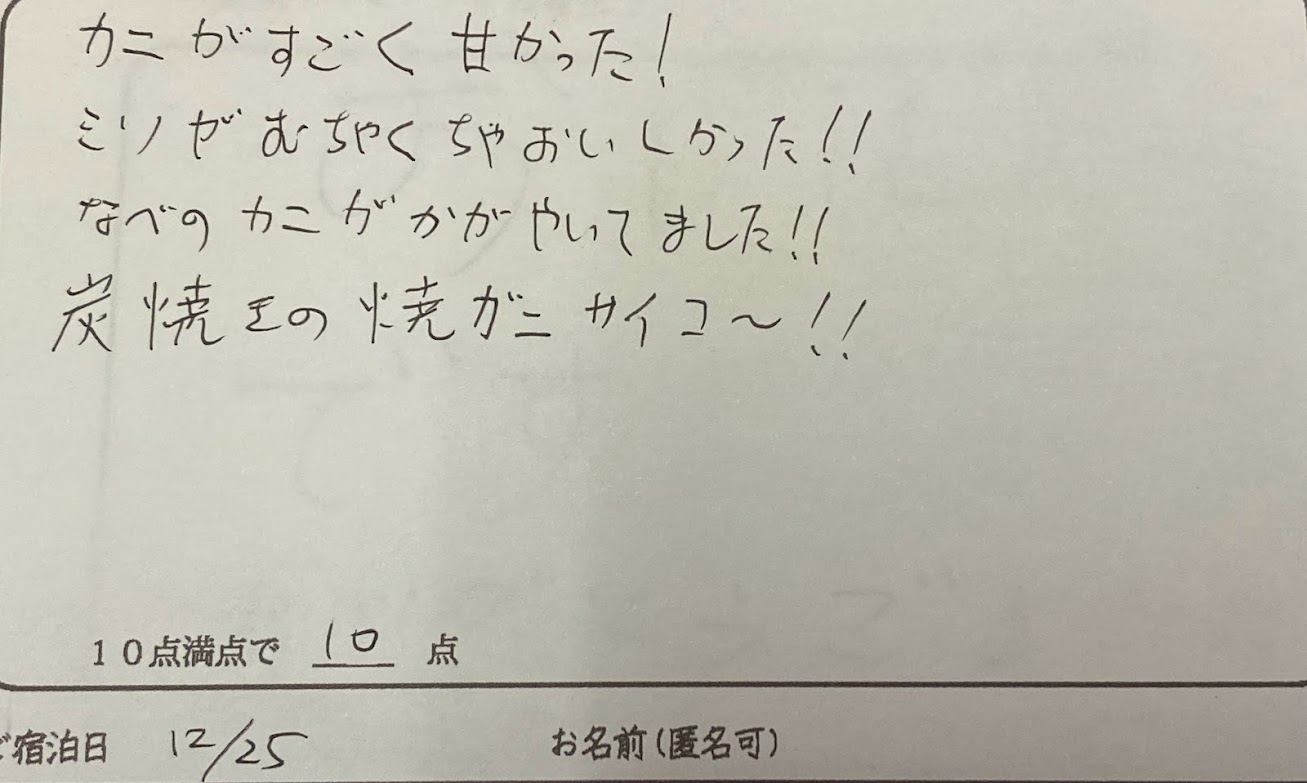 カニがすごく甘かった!
ミソがむちゃくちゃおいしかった!!
なべのカニがかがやいてました!!
炭焼きの焼ガニサイコ〜!!
10点満点で 10 点
ご宿泊日 12/25 お名前(匿名可)